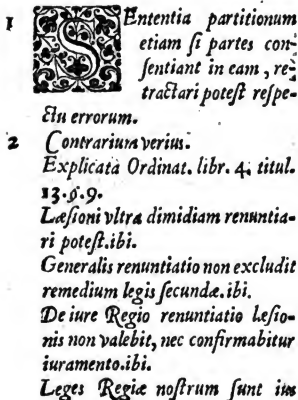 1 Sententia partitionum
etiam ſi partes con-
ſentiant in eam, re-
tractari poteſt reſpe-
ctu errorum.
2 Contrarium verius.
Explicata Ordinat. libr. 4. titul.
13. §. 9.
Læſioni vltra dimidiam renuntia-
ri poteſt. ibi.
Generalis renuntiatio non excludit
remedium legis ſecundæ. ibi.
De iure Regio renuntiatio leſio-
nis non valebit, nec confirmabitur
iuramento. ibi.
Leges Regiæ noſtrum ſunt ius